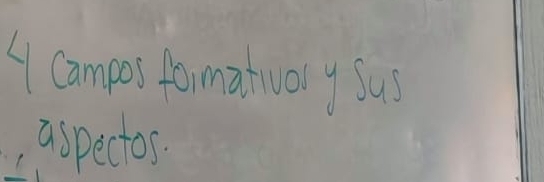 4 Campos formativos y sus
aspectos.